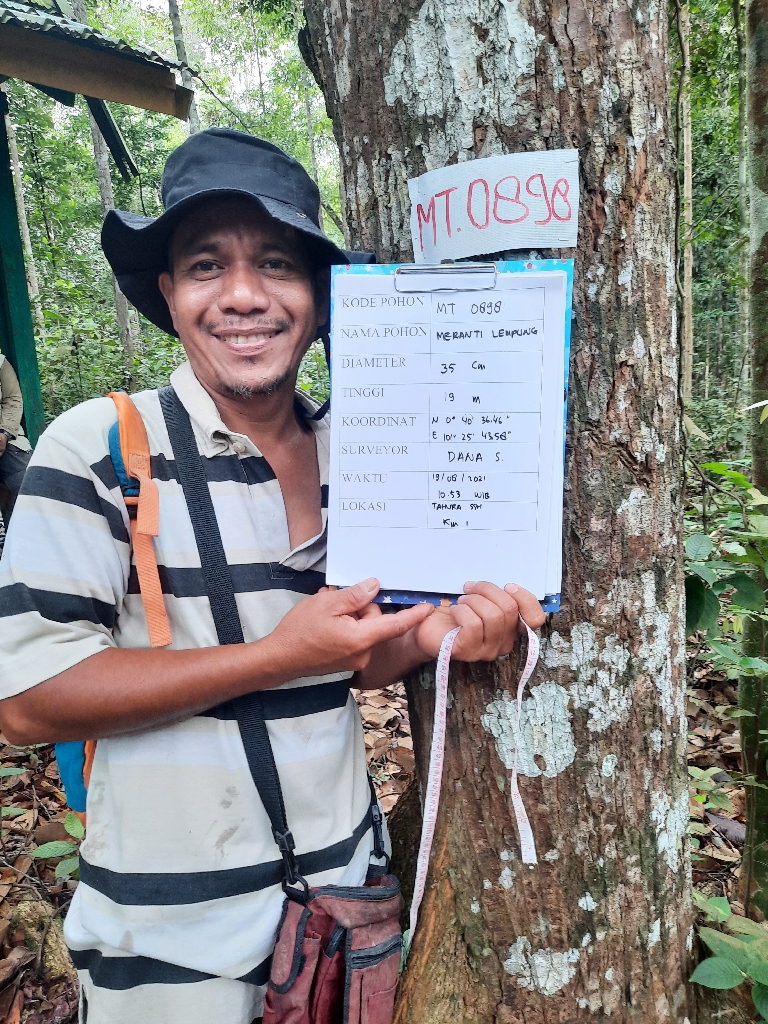 MT.0898
KODE POHON MT 0898
NAMA POHON MERANTI LEMPUNG
DIAMETER 35 Cm
TINGGI 19 m
KOORDINAT N 0° 40' 36.46"
E 101° 25' 43.58"
SURVEYOR DANA S.
WAKTU 19/08/2021
10.53 WIB
LOKASI TAHURA SSH
Km 1